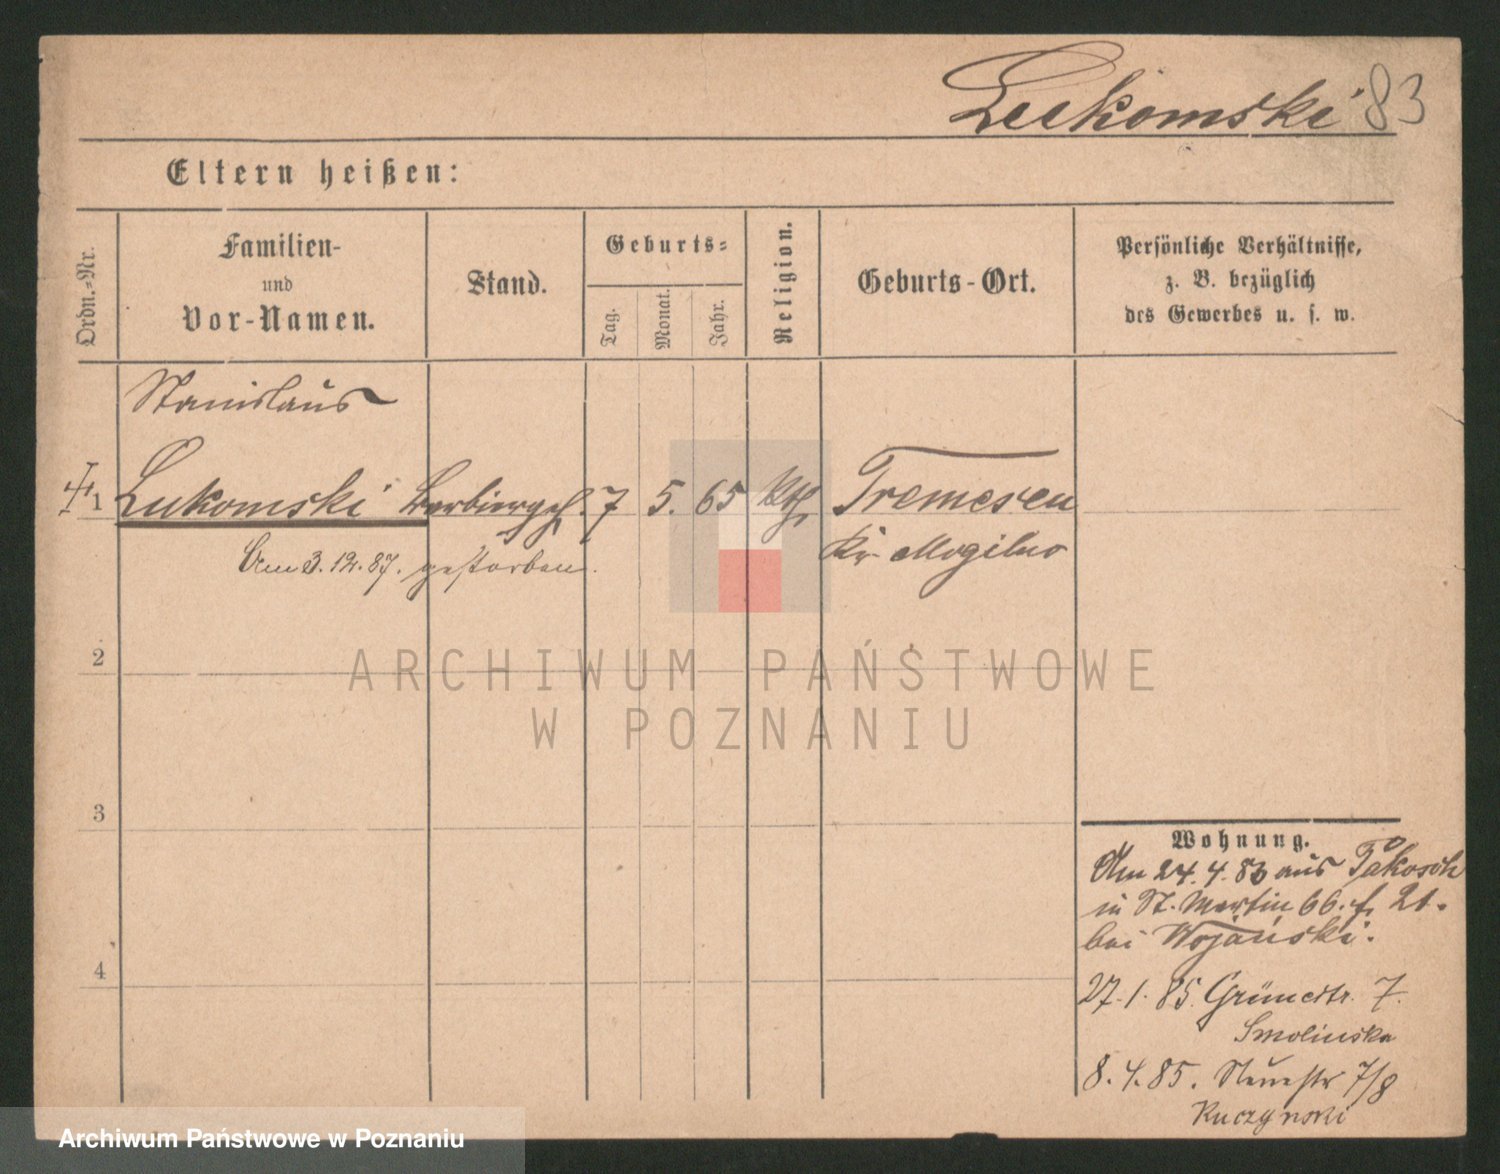 Lukomski 83
Eltern heißen:
Ordn.-Nr.
Familien-
und
Vor-Namen.
Stand.
Geburts-
Tag.
Monat.
Jahr.
Religion.
Geburts-Ort.
Persönliche Verhältnisse,
z. B. bezüglich
des Gewerbes u. s. w.
Stanislaus
1 Lukomski Barbiergeh. 7 5. 65 kth. Tremesen
Am 3.12.87. gestorben.
Kr. Mogilno
2
3
4
Wohnung.
Am 24.4.83 aus Pakosch
in St. Martin 66. f. 21.
bei Wojański.
27.1.85. Grünestr. 7.
Smolinska
8.4.85. Neuestr 7/8
Kuczynski
ARCHIWUM PAŃSTWOWE
W POZNANIU
Archiwum Państwowe w Poznaniu